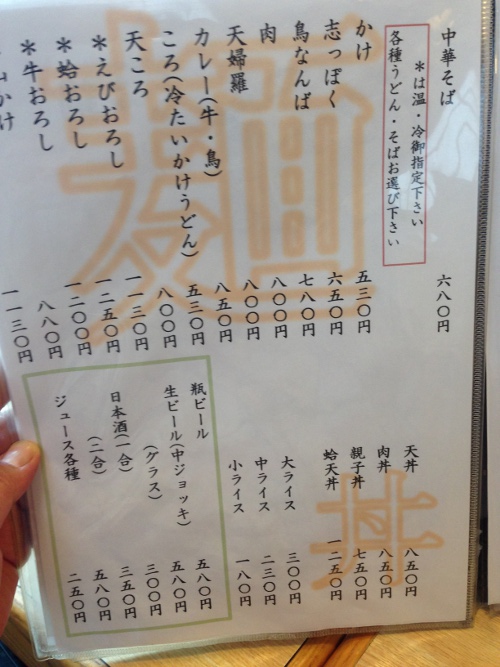 中華そば 六八〇円
＊は温・冷御指定下さい
各種うどん・そばお選び下さい
かけ 五三〇円
志っぽく 六五〇円
鳥なんば 七八〇円
肉 八〇〇円
天婦羅 八〇〇円
カレー(牛・鳥) 八五〇円
ころ(冷たいかけうどん) 五三〇円
天ころ 八〇〇円
＊えびおろし 一一三〇円
＊蛤おろし 一二五〇円
＊牛おろし 一二〇〇円
山かけ 八八〇円
一一三〇円
天丼 八五〇円
肉丼 八五〇円
親子丼 七五〇円
蛤天丼 一二五〇円
大ライス 三〇〇円
中ライス 二三〇円
小ライス 一八〇円
瓶ビール 五八〇円
生ビール(中ジョッキ) 五八〇円
(グラス) 三〇〇円
日本酒(一合) 三五〇円
(二合) 五八〇円
ジュース各種 二五〇円
麺
丼